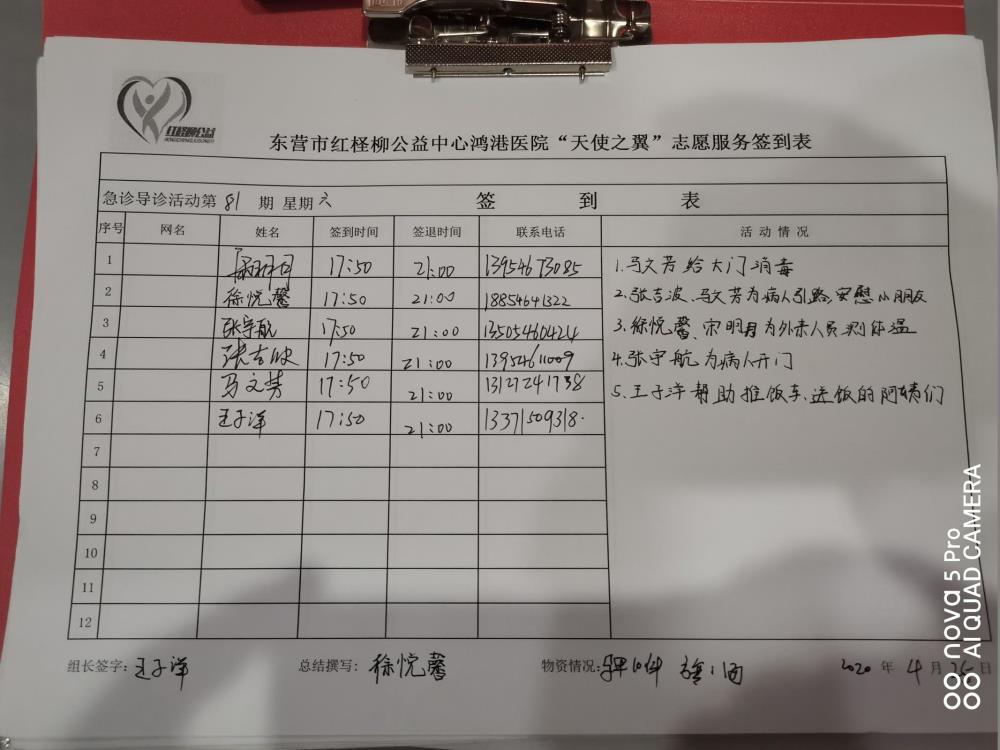 红柽柳公益
东营市红柽柳公益中心鸿港医院“天使之翼”志愿服务签到表
急诊导诊活动第 81 期 星期六 签 到 表
序号 网名 姓名 签到时间 签退时间 联系电话 活动情况
1 17:50 21:00 13954673085
2 徐悦馨 17:50 21:00 18854641322
3 张宇航 17:50 21:00 13505460424
4 张吉波 17:50 21:00 13954611009
5 马文芳 17:50 21:00 13127241738
6 王子洋 17:50 21:00 13371509318
7
8
9
10
11
12
1.马文芳给大门消毒
2.张吉波、马文芳为病人引路,安慰小朋友
3.徐悦馨、宋明月为外来人员测体温
4.张宇航为病人开门
5.王子洋帮助推饭车,送饭的阿姨们
组长签字:王子洋 总结撰写:徐悦馨 物资情况: 2020 年 4 月 日
nova 5 Pro
AI QUAD CAMERA